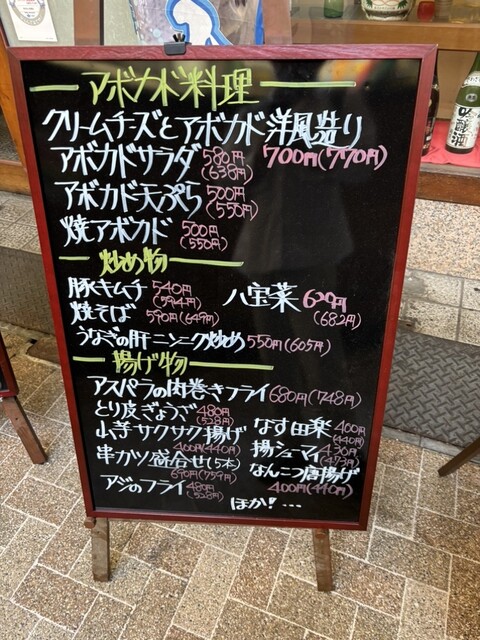 アボカド料理
クリームチーズとアボカド洋風造り
700円(770円)
アボカドサラダ 580円
(638円)
アボカド天ぷら 500円
(550円)
焼アボカド 500円
(550円)
炒め物
豚キムチ 540円
(594円)
八宝菜 620円
(682円)
焼そば 590円(649円)
うなぎの肝ニンニク炒め 550円(605円)
揚げ物
アスパラの肉巻きフライ 680円(748円)
とり皮ぎょうざ 480円
(528円)
なす田楽 400円
(440円)
山芋サクサク揚げ
400円(440円)
揚シューマイ 430円
(473円)
串カツ盛合せ(5本)
690円(759円)
なんこつ唐揚げ
400円(440円)
アジのフライ 480円
(528円)
ほか!…
吟醸酒